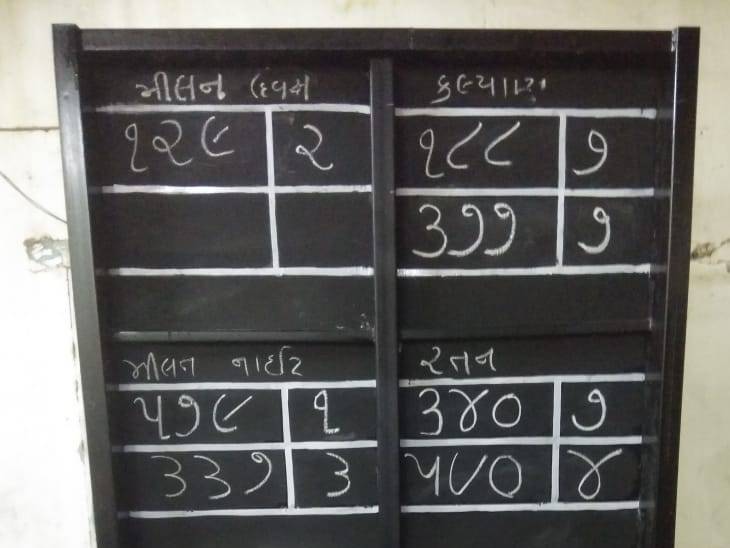 મીલન
૧૨૯ ૨
કલ્યાણ
૧૮૮ ૭
૩૭૭ ૭
મીલન નાઈટ
૫૭૯ ૧
૩૩૭ ૩
રતન
૩૪૦ ૭
૫૯૦ ૪